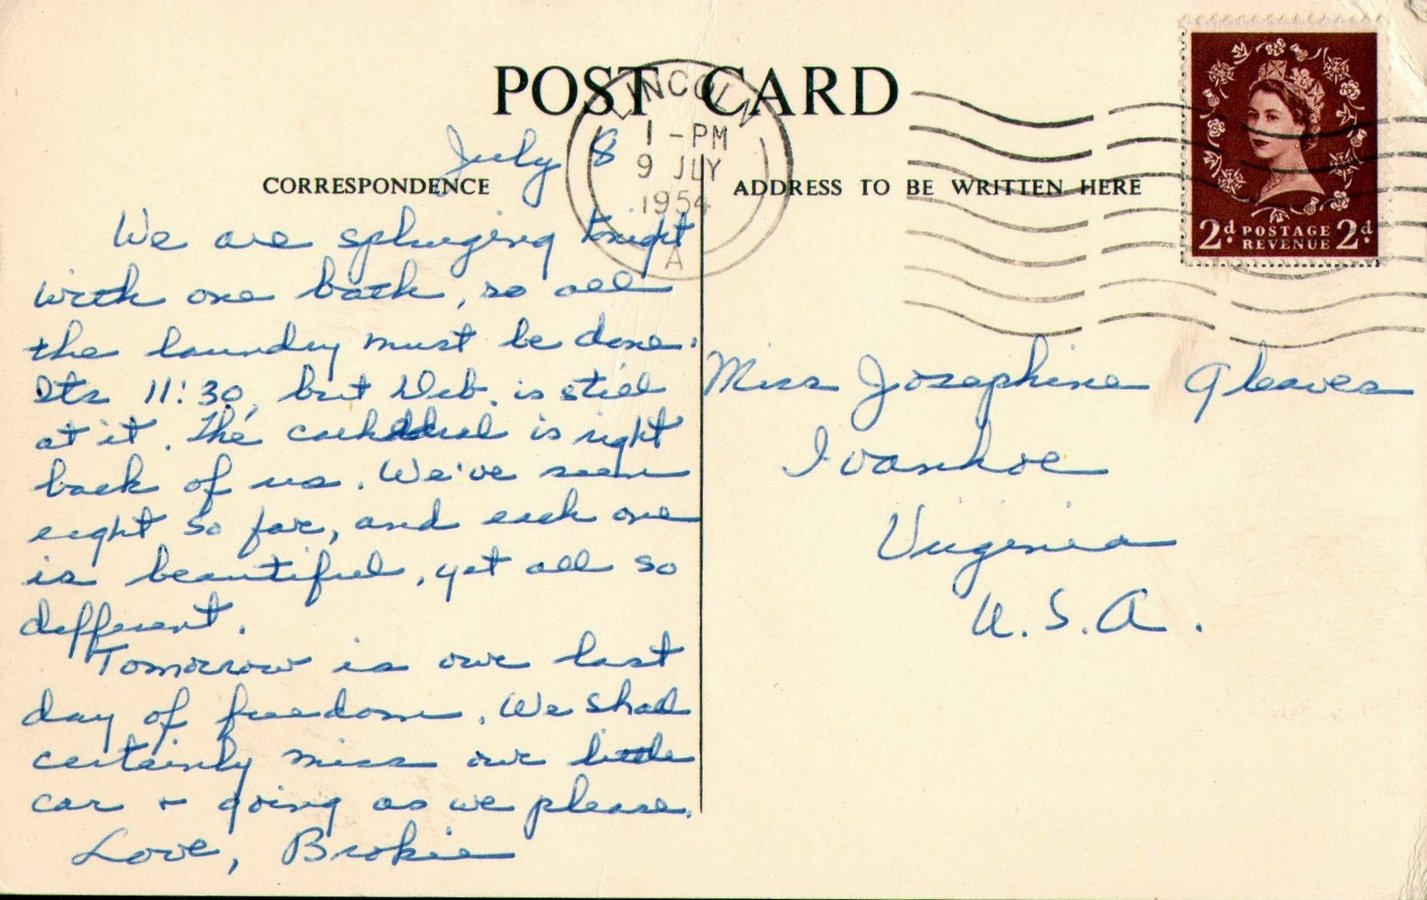 POST CARD
LINCOLN
1 - PM
9 JLY
1954
A
2d POSTAGE REVENUE 2d
CORRESPONDENCE
ADDRESS TO BE WRITTEN HERE
July 8
We are splurging tonight
with one bath, so all
the laundry must be done.
Its 11:30, but Deb. is still
at it. The cathedral is right
back of us. We've seen
eight so far, and each one
is beautiful, yet all so
different.
Tomorrow is our last
day of freedom. We shall
certainly miss our little
car + going as we please.
Love, Brokie
Miss Josephine Gleaves
Ivanhoe
Virginia
U.S.A.